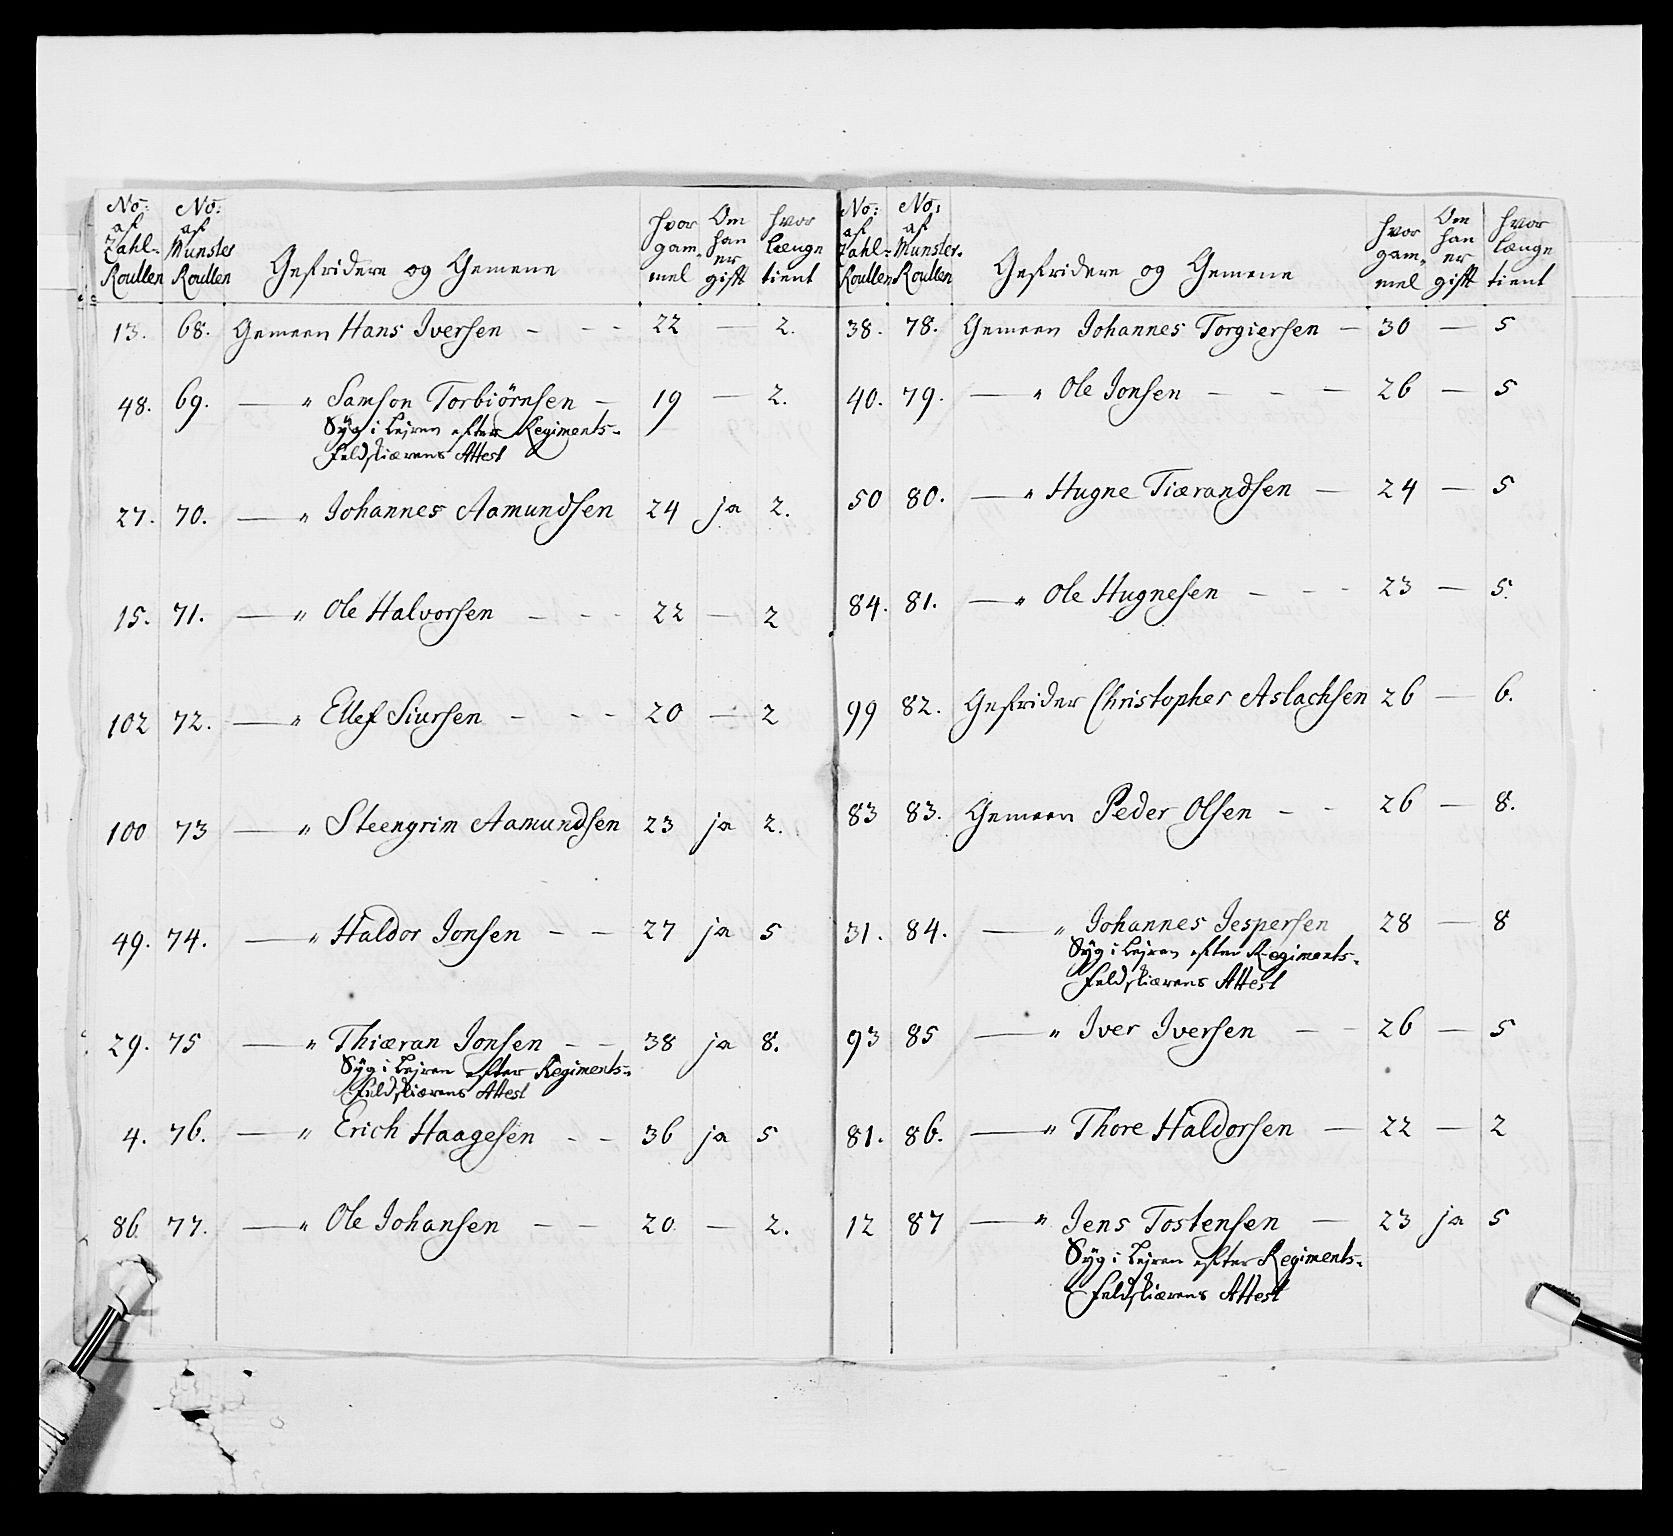 No: af Zahl-Roullen | No: af Munster Roullen | Gefridere og Gemene | hvor gammel | Om han er gift | hvor længe tient
13. 68. Gemeen Hans Iversen - - - 22 — 2.
48. 69. — " Samson Torbiørnsen — 19 — 2.
Syg i Lejren efter Regiments-
Feldskiærens Attest
27. 70. — " Johannes Aamundsen 24 ja 2.
15. 71. — " Ole Halvorsen - - - 22 — 2
102 72. — " Ellef Siursen - - - 20 — 2
100 73 — " Steengrim Aamundsen 23 ja 2.
49. 74. — " Haldor Jonsen - - 27 ja 5
29. 75 — " Thiæran Jonsen - - 38 ja 8.
Syg i Lejren efter Regiments-
Feldskiærens Attest
4. 76. — " Erich Haagesen - - 36 ja 5
86. 77. — " Ole Johansen - - 20 — 2.
No: af Zahl-Roullen | No: af Munster-Roullen | Gefridere og Gemene | hvor gammel | Om han er gift | hvor længe tient
38. 78. Gemeen Johannes Torgiersen — 30 — 5
40. 79. — " Ole Jonsen - - - 26 — 5
50 80. — " Hugne Tiærandsen — 24 — 5
84. 81. — " Ole Hugnesen - - - 23 — 5.
99 82. Gefrider Christopher Aslachsen 26 — 6.
83 83. Gemeen Peder Olsen - - 26 — 8.
31. 84. — " Johannes Jespersen 28 — 8
Syg i Lejren efter Regiments-
Feldskiærens Attest
93 85 — " Iver Iversen - - 26 — 5
81. 86. — " Thore Haldorsen — 22 — 2
12 87 — " Jens Tostensen — 23 ja 5
Syg i Lejren efter Regiments-
Feldskiærens Attest